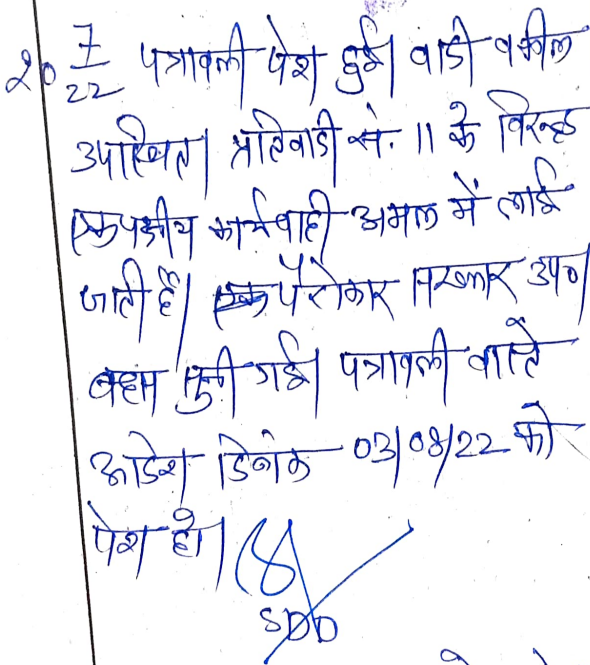 20 7/22 पत्रावली पेश हुई। वादी वकील
उपस्थित। प्रतिवादी सं. 11 के विरुद्ध
एकपक्षीय कार्यवाही अमल में लाई
जाती है। पैरोकार सरकार उप०।
बहस सुनी गई। पत्रावली वास्ते
आदेश दिनांक 03/08/22 को
पेश हो।
SDO